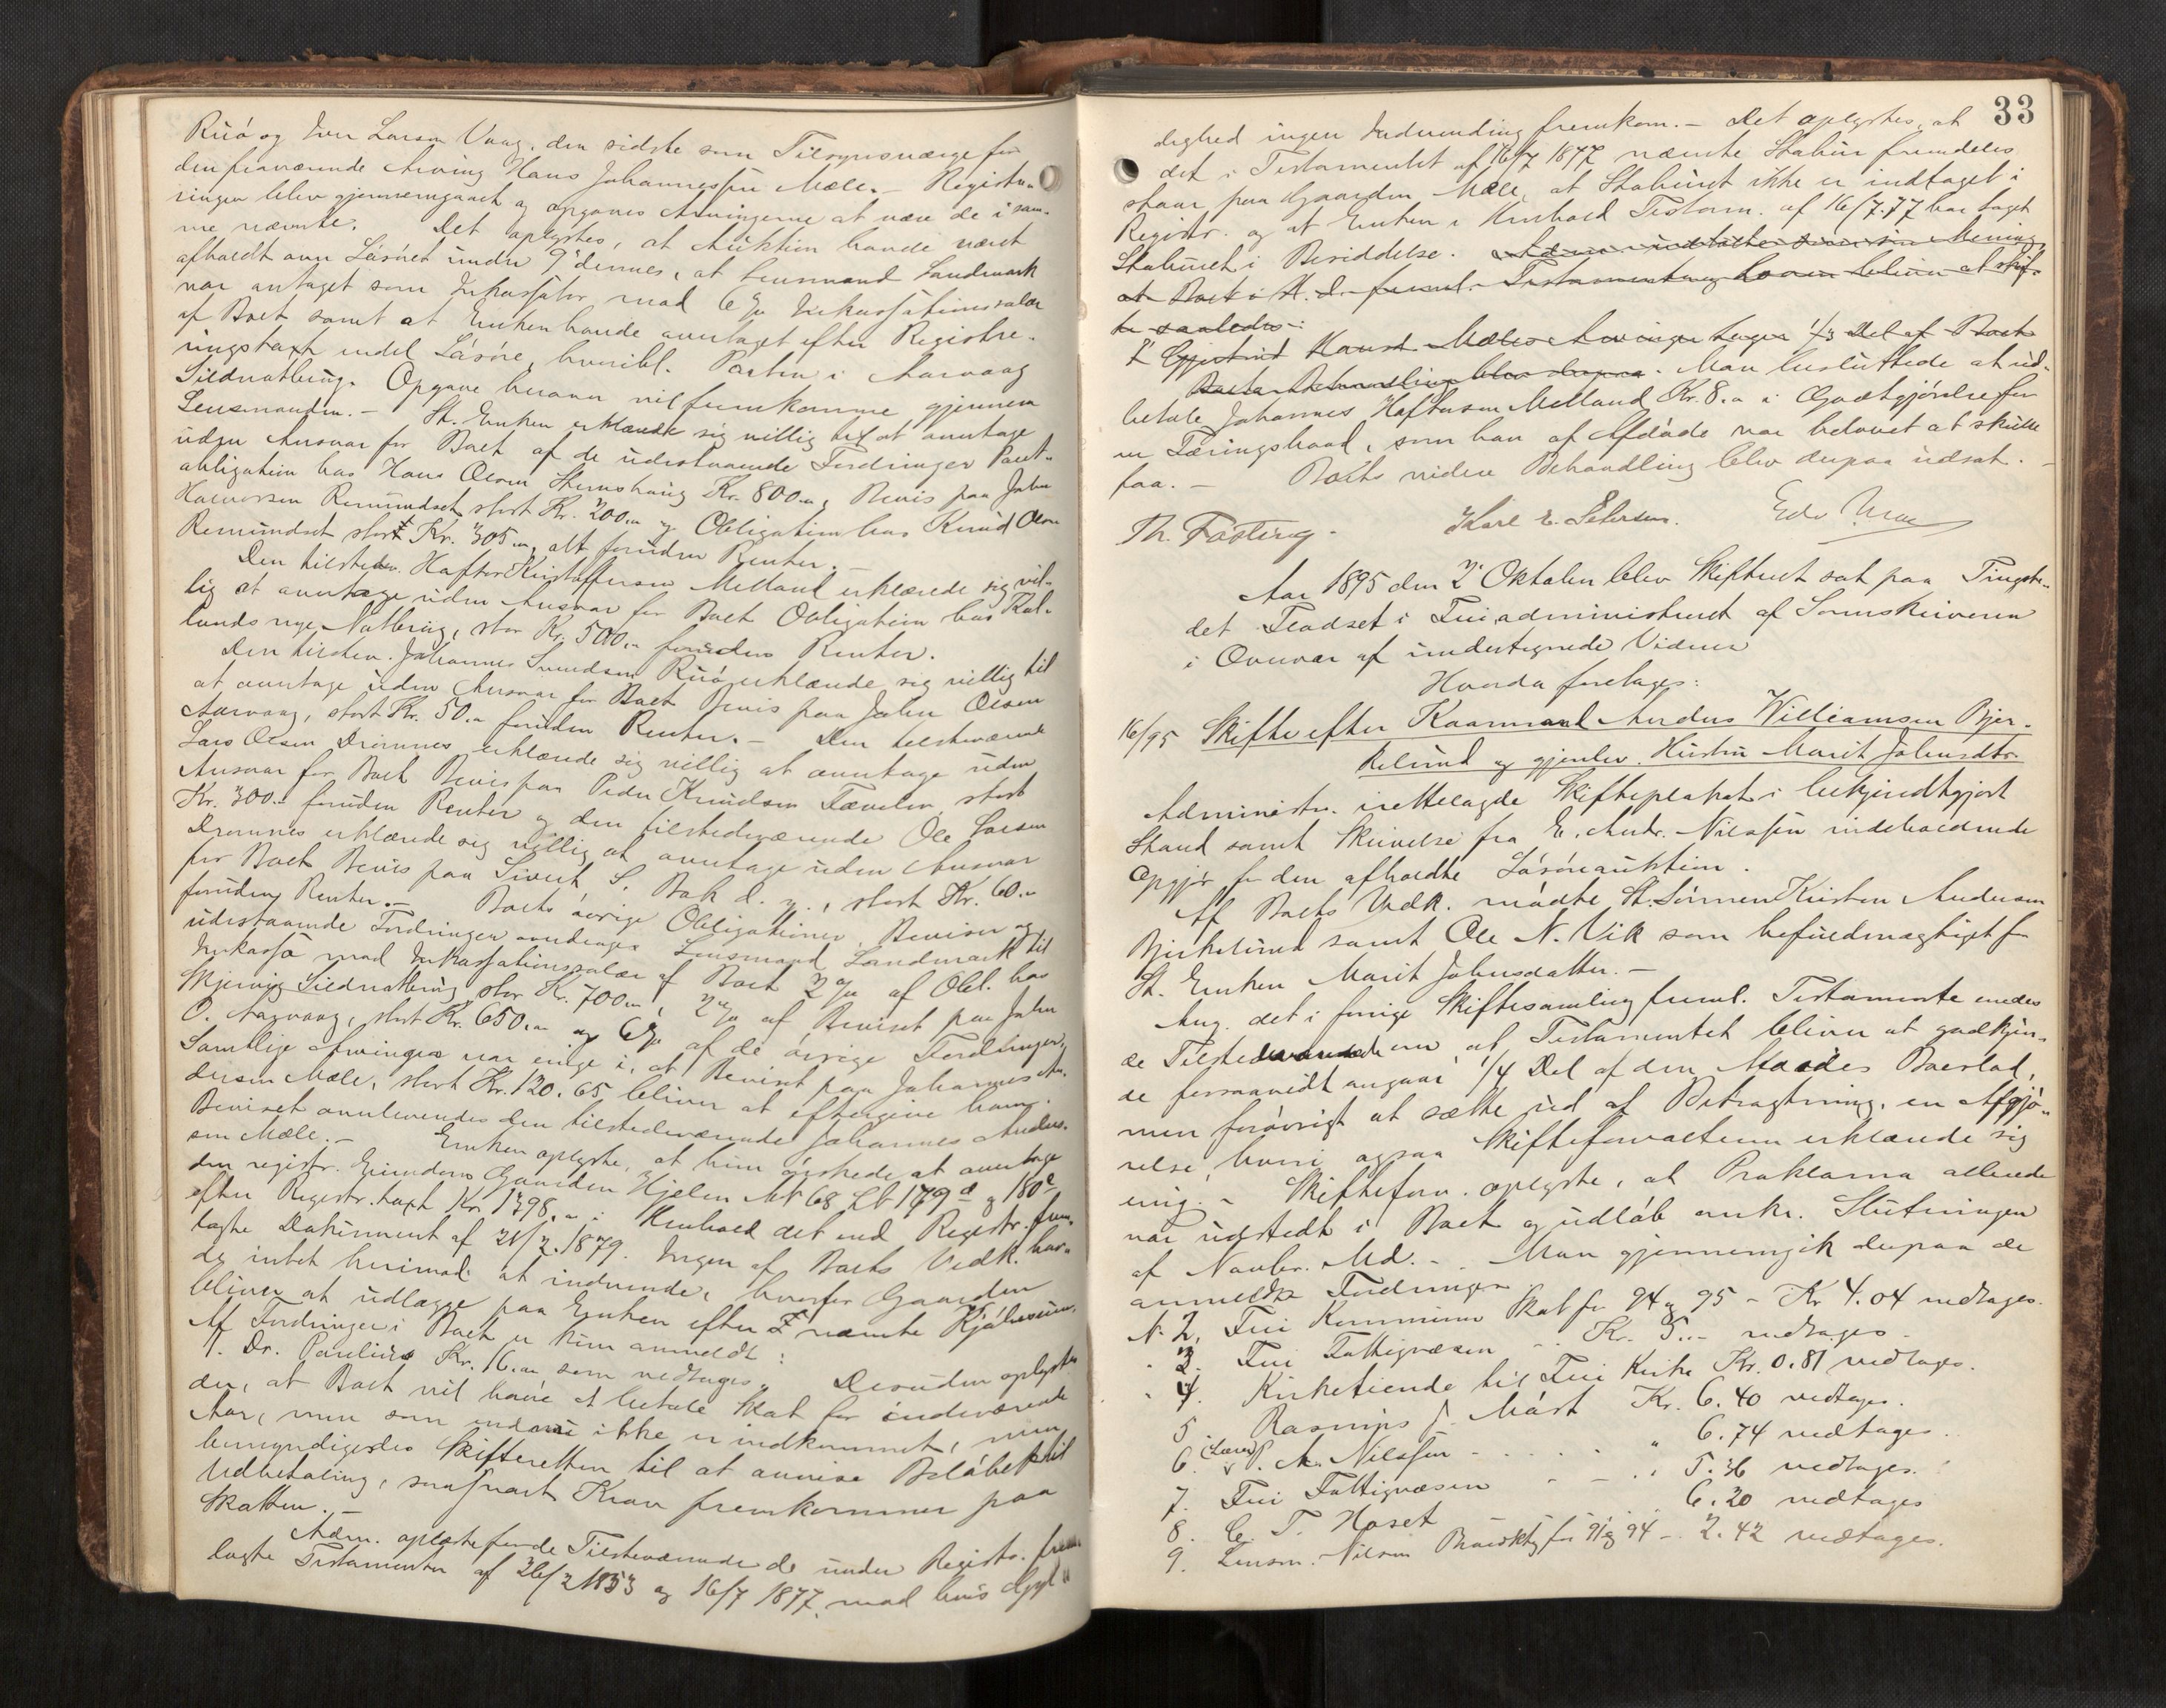 Ruö og Iver Larsen Vaag, den sidste som Tilsynsværge for
den fraværende Arving Hans Johannessen Mæle. - Registre-
ringen blev gjennemgaaet og opgaves Arvingerne at være de i sam-
me nævnte. Det oplystes, at Auktion havde været
afholdt over Løsøret under 9' dennes, at Lensmand Landmark
var antaget som Inkassator mod 6 % Inkassationssalær
af Boet samt at Enken havde overtaget efter Registre-
ringstaxt endel Løsøre, hvoribl. Parten i Aarvaag
Sildnotbrug. Opgave herover vil fremkomme gjennem
Lensmanden. - St. Enken erklærede sig villig til at overtage
uden Ansvar for Boet af de udestaaende Fordringer Pant-
obligation hos Hans Olsen Stenshaug Kr. 800.00, Bevis paa John
Halvorsen Remundset stort Kr. 200.00 og Obligation hos Knud Olsen
Remundset stor Kr. 305.00, alt foruden Renter. -
Den tilstedev. Hafter Kristoffersen Melland erklærede sig vil-
lig at overtage uden Ansvar for Boet Obligation hos Rol-
lands nye Notbrug, stor Kr. 500.00 foruden Renter.
Den tilstev. Johannes Svendsen Ruö erklærede sig villig til
at overtage uden Ansvar for Boet Bevis paa John Olsen
Aarvaag, stort Kr. 50.00 foruden Renter. - Den tilstedeværende
Lars Olsen Dromnes erklærede sig villig at overtage uden
Ansvar for Boet Bevis paa Peder Knudsen Fævelen, stort
Kr. 300.00 foruden Renter og den tilstedeværende Ole Larsen
Dromnes erklærede sig villig at overtage uden Ansvar
for Boet Bevis paa Sivert S. Bak d. y., stort Kr. 60.00
foruden Renter. - Boets øvrige Obligationer, Beviser og
udestaaende Fordringer overdrages Lensmand Landmark til
Inkasso mod Inkassationssalær af Boet 2 % af Obl. hos
Skjervig Sildnotbrug, stor Kr. 700.00, 2 % af Beviset paa John
O. Aarvaag, stort Kr. 650.00 og 6 % af de øvrige Fordringer.
Samtlige Arvinger var enige i, at Beviset paa Johannes An-
dersen Mæle, stort Kr. 120.65 bliver at eftergive ham.
Beviset overleveredes den tilstedeværende Johannes Anders-
sen Mæle. - Enken oplyste, at hun ønskede at overtage
den registr. Eiendom Gaarden Hjelen Mt 68 Lb 179d og 180c
efter Registr.taxt Kr. 1398.00 i Henhold det ved Registr. frem-
lagte Dokument af 21/2. 1879. Ingen af Boets Vedk. hav-
de intet herimod at indvende, hvorfor Gaarden
bliver at udlægge paa Enken efter nævnte Kjøbesum.
Af Fordringer i Boet er kun anmeldt:
1. Dr. Paulius Kr. 16.00 som vedtages. Desuden oplystes
der, at Boet vil have at betale Skat for indeværende
Aar, men som endnu ikke er indkommet, men
bemyndigedes Skifteretten til at anvise Beløbet til
Udbetaling, saasnart Krav fremkommer paa
Skatten. -
Adm. oplæste for de Tilsteværende de under Registr. frem-
lagte Testamenter af 26/2 1853 og 16/7 1877, mod hvis Gyl-
33
dighed ingen Indvending fremkom. - Det oplystes, at
det i Testamentet af 16/7 1877 nævnte Stabur fremdeles
staar paa Gaarden Mæle, at Staburet ikke er indtaget i
Registr. og at Enken i Henhold Testam. af 16/7. 77 har taget
Staburet i Besiddelse. Adm. udtalte som sin Mening
at Boet i H. t. freml. Testamenter og Loven bliver at skif-
te saaledes:
1' Hans Mæles Arvinger tager 1/3 Del af Boet
Boets Behandling blev derpaa. Man besluttede at ud-
betale Johannes Haftersen Melland Kr. 8.00 i Godtgjørelse for
en Færingsbaad, som han af Afdøde var belovet at skulle
faa. - Boets videre Behandling blev derpaa udsat. -
Th. Fasting. Karl E. Petersen. Edv Moe
Aar 1895 den 2' Oktober blev Skifteret sat paa Tingste-
det Flodset i Tui, administreret af Sorenskriveren
i Overvær af undertegnede Vidner
Hvorda foretages:
16/95 Skifte efter Kaarmand Anders Williamsen Bjer-
kelund og gjenlev. Hustru Marit Johnsdtr.
Administr. irettelagde Skifteplakat i bekjendtgjort
Stand samt Skrivelse fra E. Andr. Nilssen indeholdende
Opgjør for den afholdte Løsøreauktion.
Af Boets Vedk. mødte St. Sønnen Kristen Andersen
Bjerkelund samt Ole N. Vik som befuldmægtiget for
St. Enken Marit Johnsdatter. -
Ang. det i forrige Skiftesamling freml. Testamente enedes
de Tilstedeværende om at Testamentet bliver at godkjen-
de forsaavidt angaar 1/4 Del af den Afdødes Boeslod,
men forøvrigt at sætte ud af Betragtning, en Afgjø-
relse, hvori ogsaa Skifteforvalteren erklærede sig
enig. - Skifteforv. oplyste, at Proklama allerede
var udstedt i Boet og udløb omkr. Slutningen
af Novbr. Md. - Man gjennemgik derpaa de
anmeldte Fordringer.
N. 2. Tui Kommunes Skat for 94 og 95 - Kr 4.04 vedtages.
" 3. Tui Fattigvæsen - Kr. 5.00 vedtages.
" 4. Kirketiende til Tui Kirke Kr. 0.81 vedtages.
5 Rasmus J. Mårt Kr. 6.40 vedtages.
6. (Lærer) P. A. Nilssen - " 6.74 vedtages.
7. Tui Fattigvæsen - - " 5.36 vedtages.
8. C. T. Hoset " 6.20 vedtages
9. Lensm. Nilsen for 91 og 94 - 2.42 vedtages.